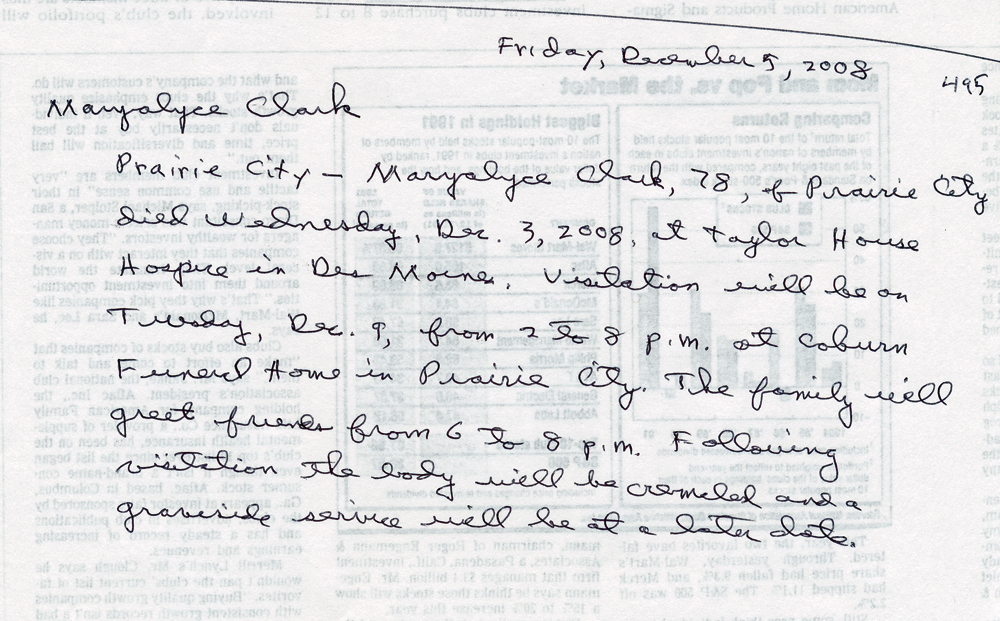 Friday, December 5, 2008
495
Maryalyce Clark
Prairie City – Maryalyce Clark, 78, of Prairie City
died Wednesday, Dec. 3, 2008, at Taylor House
Hospice in Des Moines. Visitation will be on
Tuesday, Dec. 9, from 2 to 8 p.m. at Coburn
Funeral Home in Prairie City. The family will
greet friends from 6 to 8 p.m. Following
visitation the body will be cremated and a
graveside service will be at a later date.